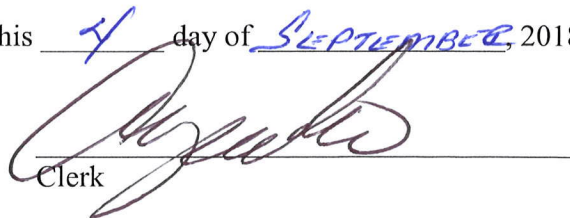 his 4 day of SEPTEMBER, 2018
Clerk